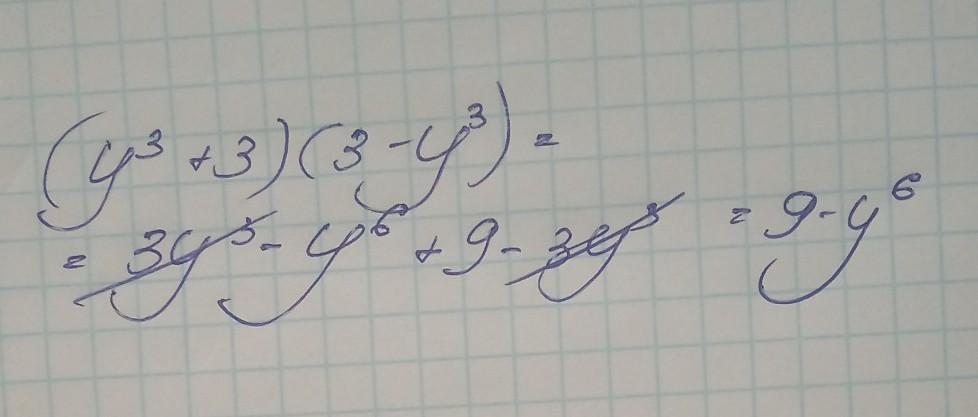 (y³ + 3)(3 - y³) =
= 3y³ - y⁶ + 9 - 3y³ = 9 - y⁶